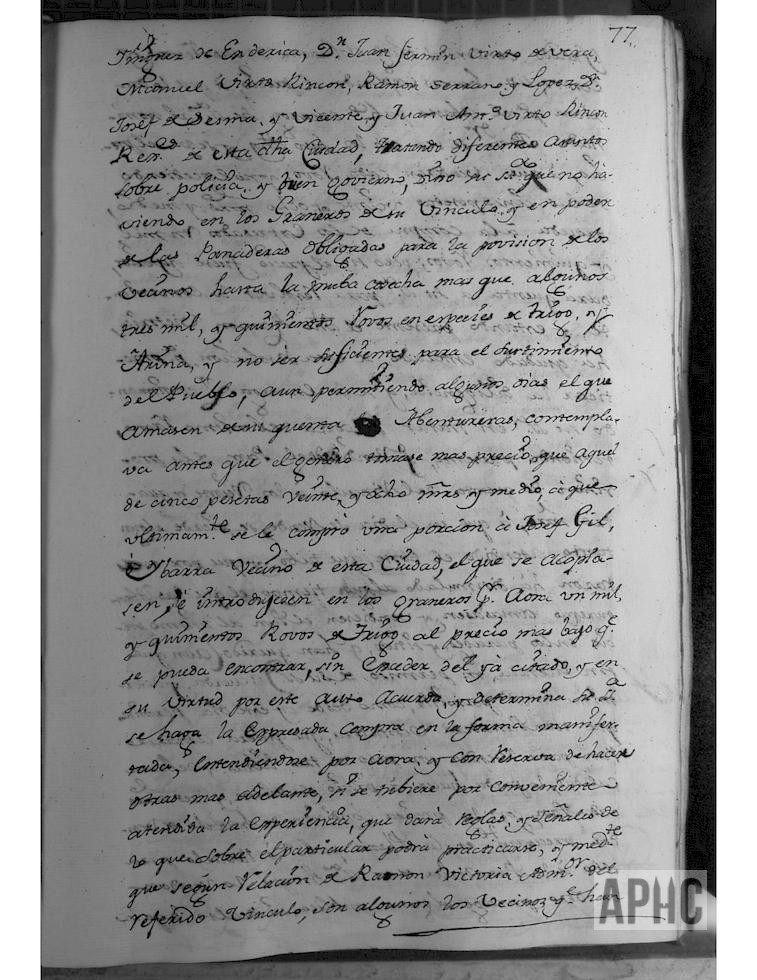 77.
Ximenez de Enderica, D.n Juan fermin Virto de vera,
Manuel Virto Rincon, Ramon Serrano, y Lopez, D.n
Josef de Desma, y Vicente, y Juan Ant.o Virto Rincon
de esta dha Ciudad, tratando diferentes Asuntos
sobre policia, y buen govierno, Dijo su S.a que no ha-
viendo en los Graneros de su Vinculo, y en poder
de las Panaderas Obligadas para la povision de los
Vecinos hasta la nueba cosecha mas que algunos
tres mil, y quinientos Rovos en especies de trigo, y
Arina, y no ser suficientes para el surtimiento
del Pueblo, aun permitiendo algunos dias el que
amasen de su quenta Abentureras, contempla-
va antes que el genero tomase mas precio, que aquel
de cinco pesetas veinte, y ocho mrs y medio, à que
vltimam.te se le comprò vna porcion à Josef Gil,
è Ybarra Vecino de esta Ciudad, el que se acopla-
sen, è introdugesen en los graneros p.r Aora vn mil,
y quinientos Rovos de trigo al precio mas bajo q.e
se pueda encontrar, sin Exceder del yà citado, y en
su Virtud por este auto Acuerda, y determina su S.a
se haga la Expresada compra en la forma manifes-
tada, entendiendose por aora, y con reserva de hacer
otras mas adelante, si se tubiere por conveniente
atendida la experiencia, que darà reglas, y señales de
lo que sobre el particular podrà practicarse, y med.te
que segun Relacion de Ramon Victoria Adm.or del
referido Vinculo, son algunos los Vecinos q.e hav
APHC